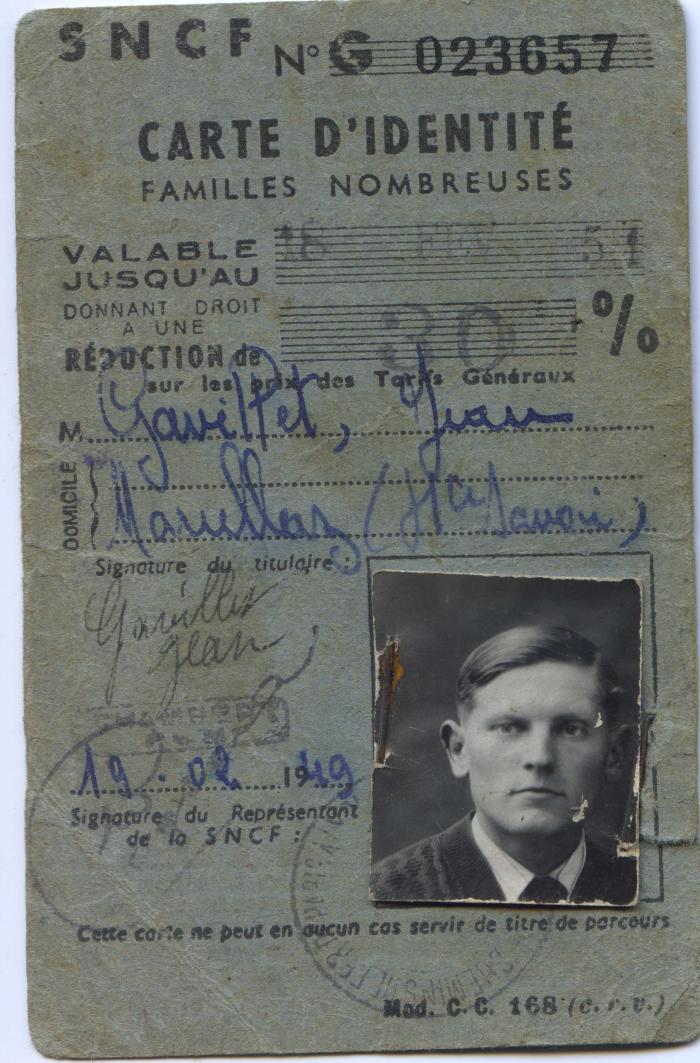 SNCF N° G 023657
CARTE D'IDENTITÉ
FAMILLES NOMBREUSES
VALABLE
JUSQU'AU 18 FEV 51
DONNANT DROIT
A UNE
RÉDUCTION de 30 %
sur les prix des Tarifs Généraux
M Gavillet, Jean
DOMICILE
Marcellaz (Hte Savoie)
Signature du titulaire :
Gavillet
Jean
CHAMBERY
19 . 02 1949
Signature du Représentant
de la SNCF :
Cette carte ne peut en aucun cas servir de titre de parcours
Mod. C. C. 168 (c. r. v.)